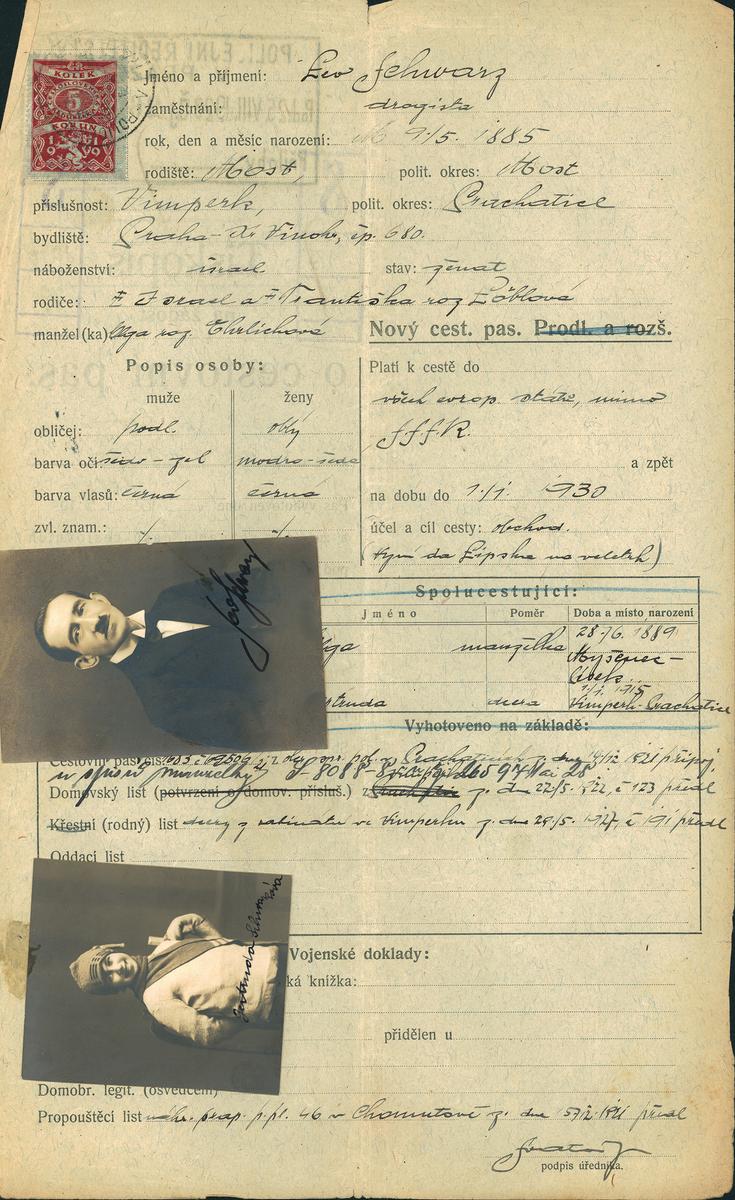 KOLEK
5
KORUN
1919
Jméno a příjmení: Leo Schwarz
zaměstnání: drogista
rok, den a měsíc narození: 9./5. 1885
rodiště: Most, polit. okres: Most
příslušnost: Vimperk, polit. okres: Prachatice
bydliště: Praha - Kr. Vinohr, čp. 680.
náboženství: israel stav: ženat
rodiče: Israel a Františka roz Löblová
manžel (ka) Olga roz. Ehrlichová
Nový cest. pas. Prodl. a rozš.
Popis osoby:
muže ženy
obličej: podl. oblý
barva očí: šedo-zel modro-šedé
barva vlasů: černá černá
zvl. znam.: -/. -/.
Platí k cestě do
všech evrop. států, mimo
SSSR.
a zpět
na dobu do 1./1. 1930
účel a cíl cesty: obchod.
(nyní do Lipska na veletrh)
Spolucestující:
Jméno Poměr Doba a místo narození
lga manželka 28./6. 1889
Písek
truda dcera 1/1. 1915
Vimperk-Prachatice
Vyhotoveno na základě:
Cestovní pas čís.
Domovský list (potvrzení o domov. přísluš.) z z. dne 22/5. 1922, č 123 předl
Křestní (rodný) list dcery z matinatu ve Vimperku z. dne 29/5. 1927, č 191 předl
Oddací list
Vojenské doklady:
ká knížka:
přidělen u
Domobr. legit. (osvědčení)
Propouštěcí list náhr. prap. p. pl. 46 v Chomutově z. dne předl
podpis úředníka.
Leo Schwarz
Gertruda Schwarzová